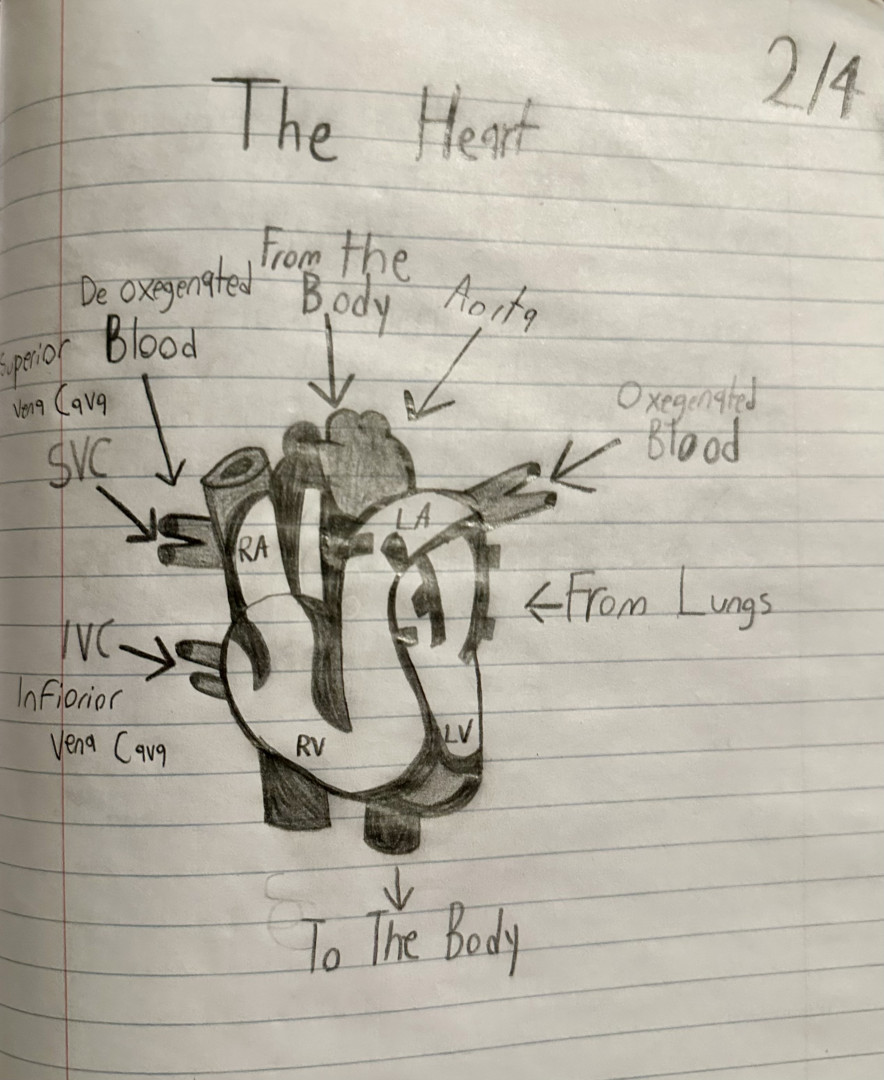 2/4
The Heart
From the
Body
De oxegenated
Blood
Aorta
Superior
Vena Cava
SVC
Oxegenated
Blood
LA
RA
From Lungs
IVC
Infiorior
Vena Cava
RV
LV
To The Body